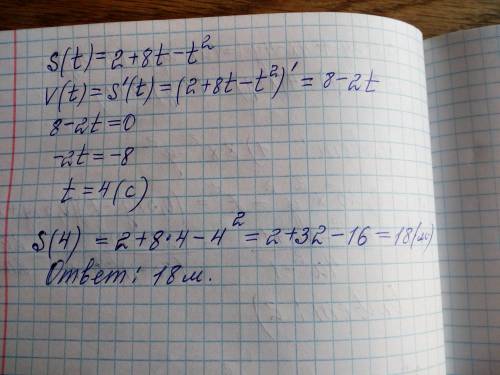 s(t)=2+8t-t²
v(t)=s'(t)=(2+8t-t²)'=8-2t
8-2t=0
-2t=-8
t=4(c)
s(4)=2+8·4-4²=2+32-16=18(м)
Ответ: 18м.